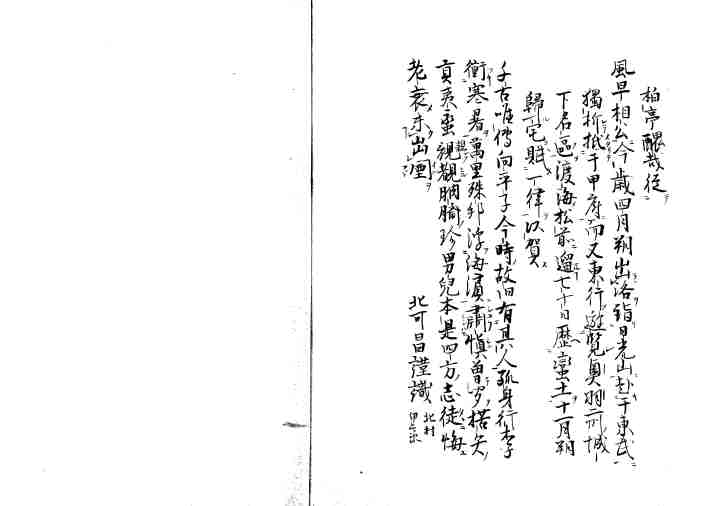 柏亭醸哉従
風早相公今歳四月朔出洛詣日光山赴于東武
獨折抵于甲府而又東行遊覧奥羽二州城
下名區渡海松前遛七十日歴蠻土十一月朔
歸宅賦一律以賀
千古唯傳向平子今時故旧有其人孤身行李
衝寒暑萬里殊邦浮海濱肅慎曽穷楛矢
貢夷蛮親観膃肭珍男児本是四方志徒悔
老衰未出
北可昌謹識
北村